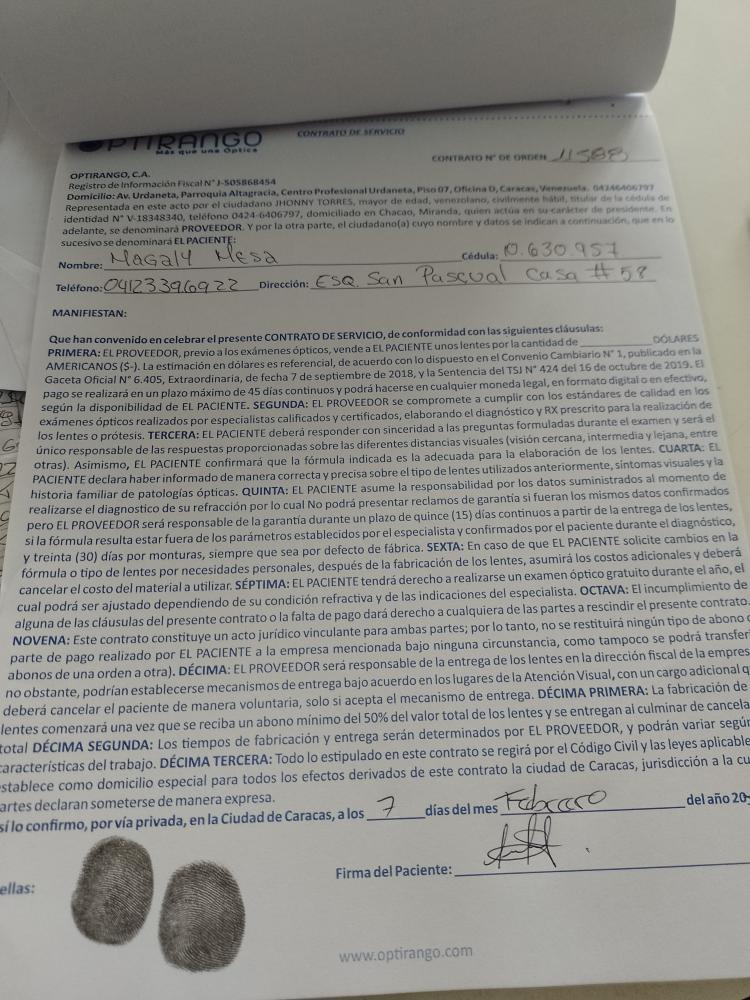 OPTIRANGO
Más que una Óptica
CONTRATO DE SERVICIO
CONTRATO N° DE ORDEN 11588
OPTIRANGO, C.A.
Registro de Información Fiscal N° J-505868454
Domicilio: Av. Urdaneta, Parroquia Altagracia, Centro Profesional Urdaneta, Piso 07, Oficina D, Caracas, Venezuela. 04246406797
Representada en este acto por el ciudadano JHONNY TORRES, mayor de edad, venezolano, civilmente hábil, titular de la cédula de
identidad N° V-18348340, teléfono 0424-6406797, domiciliado en Chacao, Miranda, quien actúa en su carácter de presidente. En
adelante, se denominará PROVEEDOR. Y por la otra parte, el ciudadano(a) cuyo nombre y datos se indican a continuación, que en lo
sucesivo se denominará EL PACIENTE:
Nombre: Magaly Mesa Cédula: 10.630.957
Teléfono: 04123396922 Dirección: ESQ. San Pascual Casa # 58
MANIFIESTAN:
Que han convenido en celebrar el presente CONTRATO DE SERVICIO, de conformidad con las siguientes cláusulas:
PRIMERA: EL PROVEEDOR, previo a los exámenes ópticos, vende a EL PACIENTE unos lentes por la cantidad de ____________ DÓLARES
AMERICANOS ($-). La estimación en dólares es referencial, de acuerdo con lo dispuesto en el Convenio Cambiario N° 1, publicado en la
Gaceta Oficial N° 6.405, Extraordinaria, de fecha 7 de septiembre de 2018, y la Sentencia del TSJ N° 424 del 16 de octubre de 2019. El
pago se realizará en un plazo máximo de 45 días continuos y podrá hacerse en cualquier moneda legal, en formato digital o en efectivo,
según la disponibilidad de EL PACIENTE. SEGUNDA: EL PROVEEDOR se compromete a cumplir con los estándares de calidad en los
exámenes ópticos realizados por especialistas calificados y certificados, elaborando el diagnóstico y RX prescrito para la realización de
los lentes o prótesis. TERCERA: EL PACIENTE deberá responder con sinceridad a las preguntas formuladas durante el examen y será el
único responsable de las respuestas proporcionadas sobre las diferentes distancias visuales (visión cercana, intermedia y lejana, entre
otras). Asimismo, EL PACIENTE confirmará que la fórmula indicada es la adecuada para la elaboración de los lentes. CUARTA: EL
PACIENTE declara haber informado de manera correcta y precisa sobre el tipo de lentes utilizados anteriormente, síntomas visuales y la
historia familiar de patologías ópticas. QUINTA: EL PACIENTE asume la responsabilidad por los datos suministrados al momento de
realizarse el diagnostico de su refracción por lo cual No podrá presentar reclamos de garantía si fueran los mismos datos confirmados
pero EL PROVEEDOR será responsable de la garantía durante un plazo de quince (15) días continuos a partir de la entrega de los lentes,
si la fórmula resulta estar fuera de los parámetros establecidos por el especialista y confirmados por el paciente durante el diagnóstico,
y treinta (30) días por monturas, siempre que sea por defecto de fábrica. SEXTA: En caso de que EL PACIENTE solicite cambios en la
fórmula o tipo de lentes por necesidades personales, después de la fabricación de los lentes, asumirá los costos adicionales y deberá
cancelar el costo del material a utilizar. SÉPTIMA: EL PACIENTE tendrá derecho a realizarse un examen óptico gratuito durante el año, el
cual podrá ser ajustado dependiendo de su condición refractiva y de las indicaciones del especialista. OCTAVA: El incumplimiento de
alguna de las cláusulas del presente contrato o la falta de pago dará derecho a cualquiera de las partes a rescindir el presente contrato.
NOVENA: Este contrato constituye un acto jurídico vinculante para ambas partes; por lo tanto, no se restituirá ningún tipo de abono o
parte de pago realizado por EL PACIENTE a la empresa mencionada bajo ninguna circunstancia, como tampoco se podrá transfer
abonos de una orden a otra). DÉCIMA: EL PROVEEDOR será responsable de la entrega de los lentes en la dirección fiscal de la empres
no obstante, podrían establecerse mecanismos de entrega bajo acuerdo en los lugares de la Atención Visual, con un cargo adicional q
deberá cancelar el paciente de manera voluntaria, solo si acepta el mecanismo de entrega. DÉCIMA PRIMERA: La fabricación de
lentes comenzará una vez que se reciba un abono mínimo del 50% del valor total de los lentes y se entregan al culminar de cancela
total DÉCIMA SEGUNDA: Los tiempos de fabricación y entrega serán determinados por EL PROVEEDOR, y podrán variar según
características del trabajo. DÉCIMA TERCERA: Todo lo estipulado en este contrato se regirá por el Código Civil y las leyes aplicable
establece como domicilio especial para todos los efectos derivados de este contrato la ciudad de Caracas, jurisdicción a la cu
artes declaran someterse de manera expresa.
sí lo confirmo, por vía privada, en la Ciudad de Caracas, a los 7 días del mes Febrero del año 20
Firma del Paciente:
ellas:
www.optirango.com